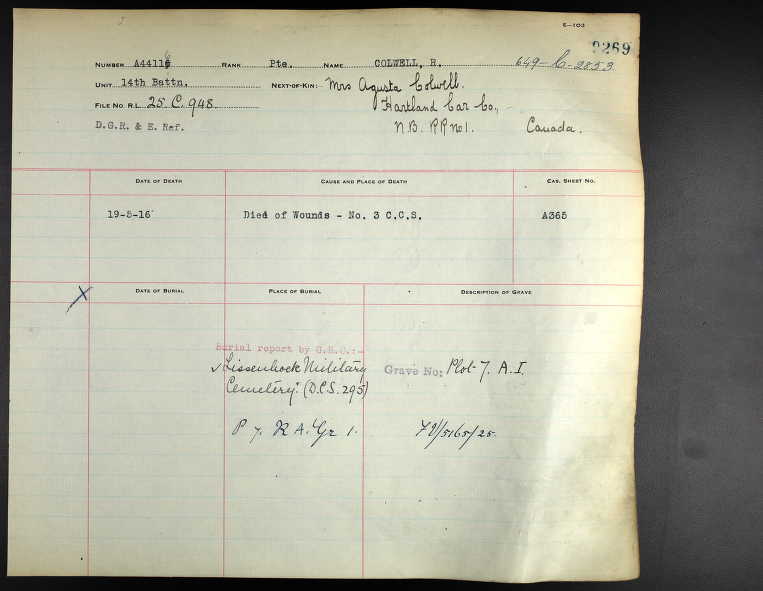 E-103
0269
NUMBER A44116 RANK Pte. NAME COLWELL, R. 649-C-2853
UNIT 14th Battn. NEXT-OF-KIN: Mrs Agusta Colwell.
FILE NO. R.L. 25. C. 948. Hartland Car Co.,
D.G.R. & E. Ref. N.B. RR No1. Canada.
DATE OF DEATH CAUSE AND PLACE OF DEATH CAS. SHEET NO.
19-5-16 Died of Wounds - No. 3 C.C.S. A365
DATE OF BURIAL PLACE OF BURIAL DESCRIPTION OF GRAVE
Burial report by G.R.C.:-
Lissenhoek Military Grave No: Plot 7. A. I.
Cemetery. (D.C.S. 295)
P 7. R A. Gr 1.